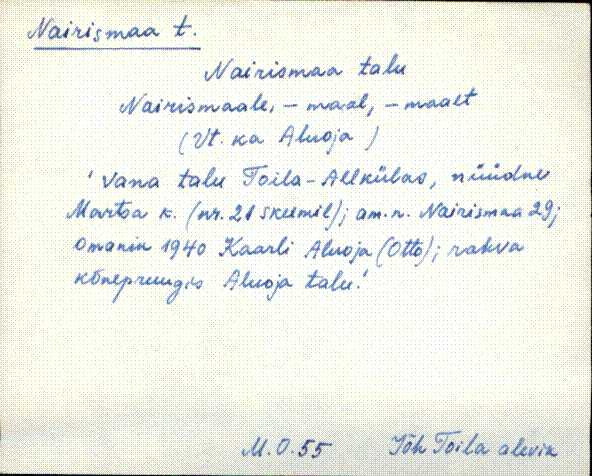 Nairismaa t.
Nairismaa talu
Nairismaale, – maal, – maalt
(Vt. ka Aluoja )
' vana talu Toila-Allkülas, nüüdne
Martsa k. (nr. 21 skeemil); am.n. Nairismaa 29;
omanik 1940 Kaarli Aluoja (Otto); rahva
kõnepruugis Aluoja talu.'
M.O.55 Jõh Toila alevik